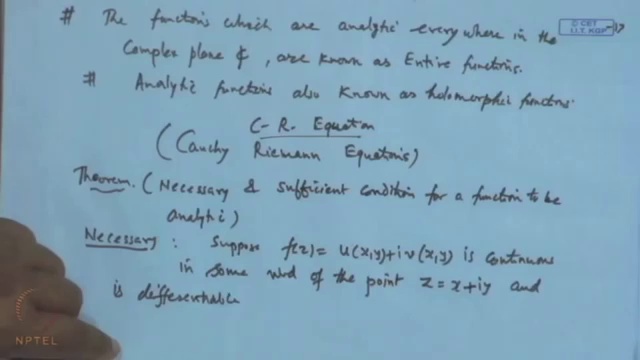 # The functions which are analytic everywhere in the
Complex plane ₵, are known as Entire functions.
# Analytic functions also known as holomorphic functions.
C-R. Equation
(Cauchy Riemann Equations)
Theorem. (Necessary & sufficient condition for a function to be
analytic)
Necessary : Suppose f(z) = u(x,y)+iv(x,y) is continuous
in some nbd of the point z = x+iy and
is differentiable
© CET
I.I.T. KGP
NPTEL